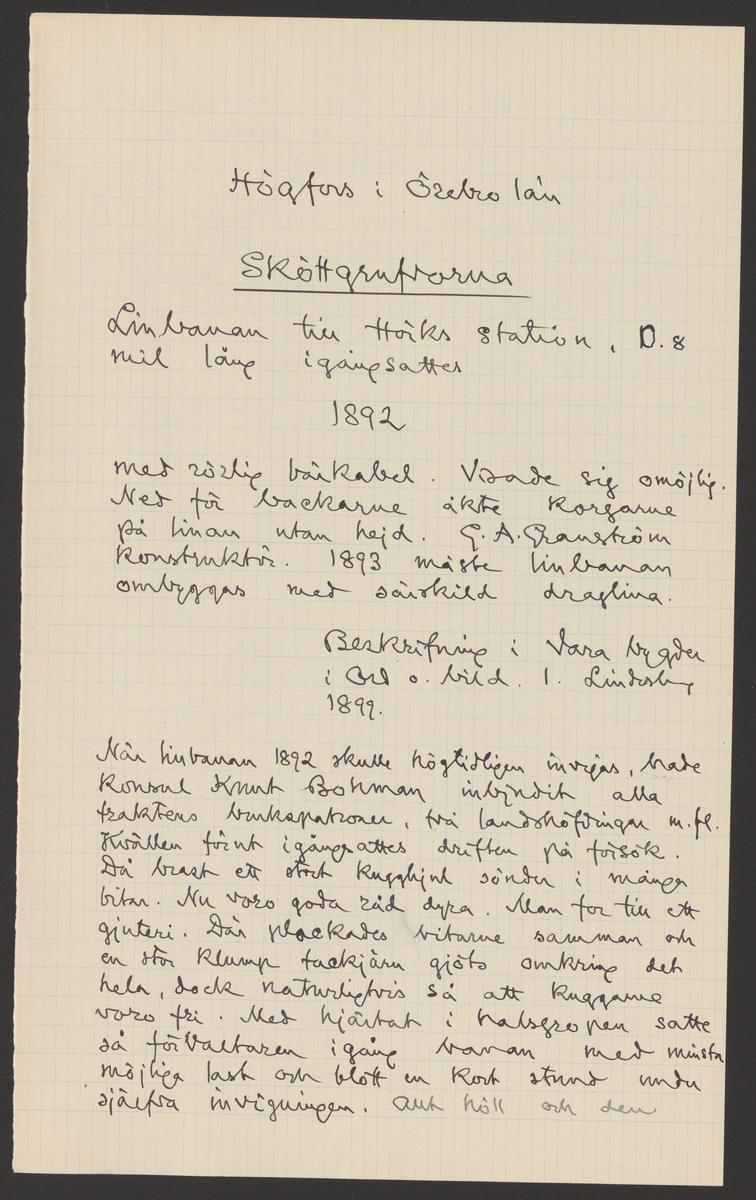 Högfors i Örebro län
Sköttgrufvorna
Linbanan till Hörks station, 0.8
mil lång igångsattes
1892
med rörlig bärkabel. Visade sig omöjlig.
Ned för backarne åkte korgarne
på linan utan hejd. G. A. Granström
konstruktör. 1893 måste linbanan
ombyggas med särskild draglina.
Beskrifning i Våra bygder
i Ord o. bild. 1. Lindesberg
1899.
När linbanan 1892 skulle högtidligen invigas, hade
Konsul Knut Bohman inbjudit alla
traktens brukspatroner, två landshöfdingar m.fl.
Kvällen förut igångsattes driften på försök.
Då brast ett stort kugghjul sönder i många
bitar. Nu voro goda råd dyra. Man for till ett
gjuteri. Där plockades bitarne samman och
en stor klump tackjärn gjöts omkring det
hela, dock naturligtvis så att kuggarne
voro fri. Med hjärtat i halsgropen satte
så förvaltaren igång banan med minsta
möjliga last och blott en kort stund under
själfva invigningen. Allt höll och den